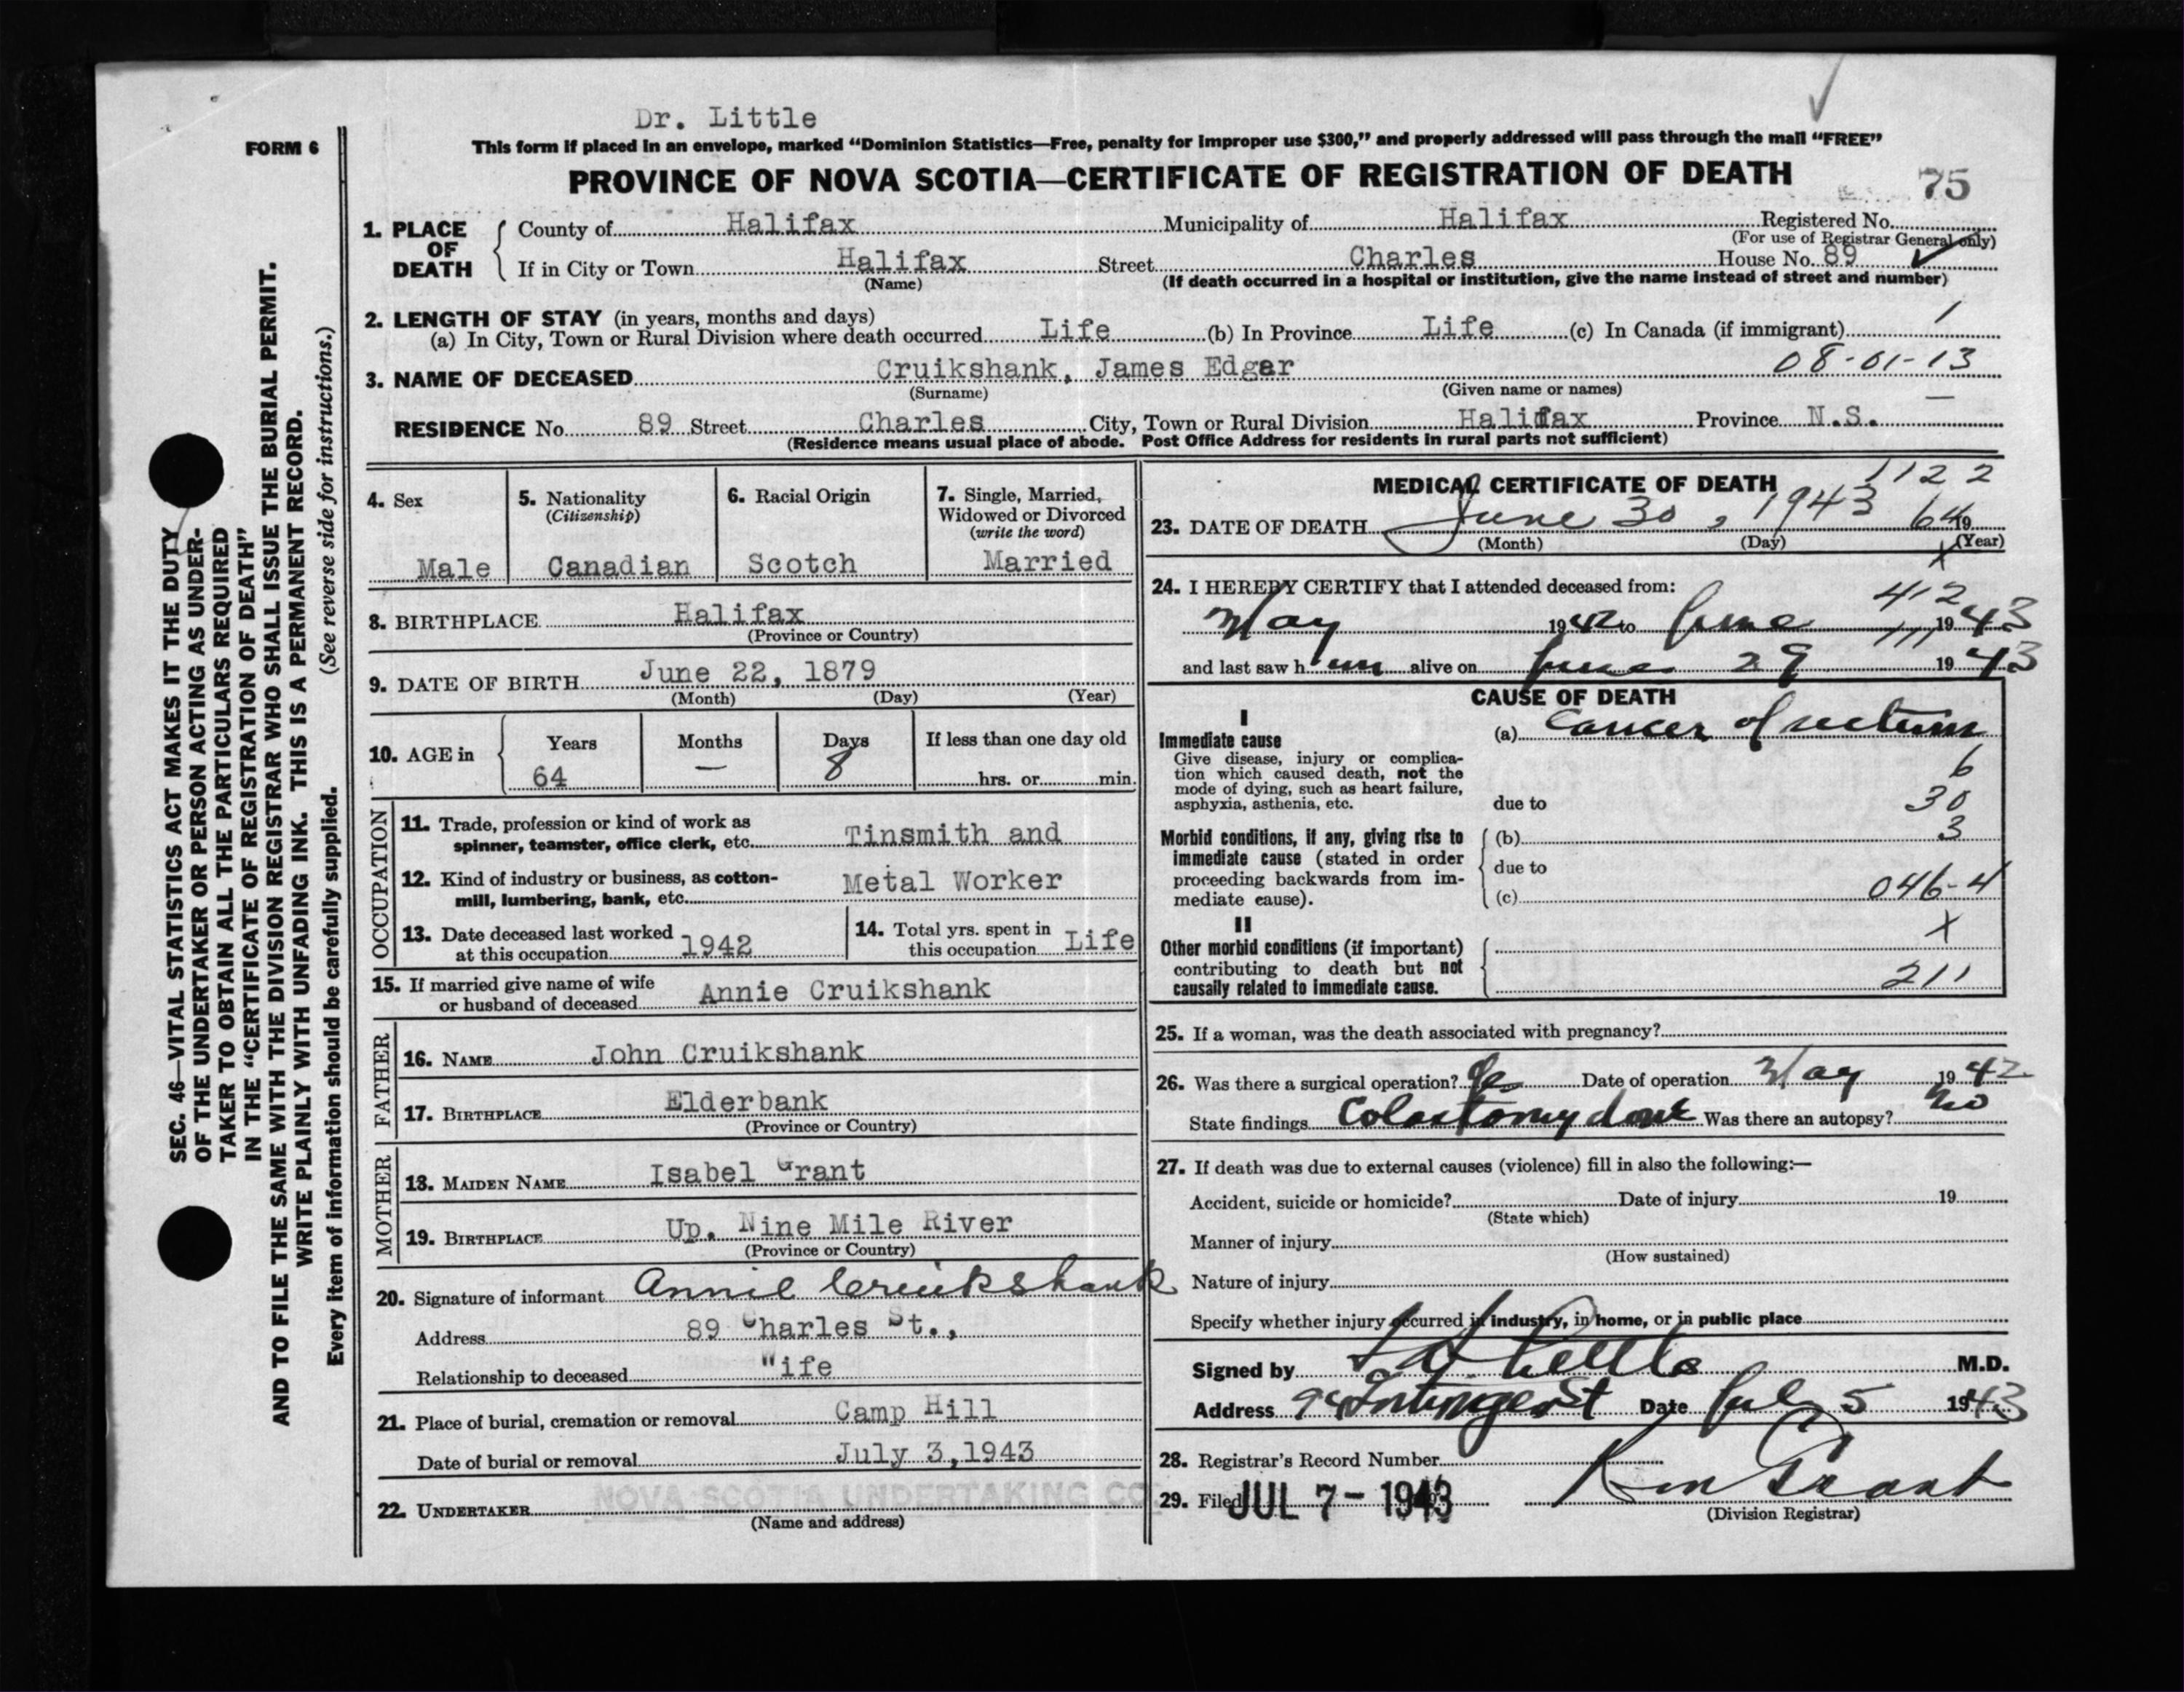 Dr. Little
FORM 6
This form if placed in an envelope, marked "Dominion Statistics—Free, penalty for improper use $300," and properly addressed will pass through the mail "FREE"
PROVINCE OF NOVA SCOTIA—CERTIFICATE OF REGISTRATION OF DEATH
75
SEC. 46—VITAL STATISTICS ACT MAKES IT THE DUTY
OF THE UNDERTAKER OR PERSON ACTING AS UNDER-
TAKER TO OBTAIN ALL THE PARTICULARS REQUIRED
IN THE "CERTIFICATE OF REGISTRATION OF DEATH"
AND TO FILE THE SAME WITH THE DIVISION REGISTRAR WHO SHALL ISSUE THE BURIAL PERMIT.
WRITE PLAINLY WITH UNFADING INK. THIS IS A PERMANENT RECORD.
Every item of information should be carefully supplied. (See reverse side for instructions.)
1. PLACE OF DEATH
County of Halifax Municipality of Halifax Registered No.
(For use of Registrar General only)
If in City or Town Halifax Street Charles House No. 89
(Name) (If death occurred in a hospital or institution, give the name instead of street and number)
2. LENGTH OF STAY (in years, months and days)
(a) In City, Town or Rural Division where death occurred Life (b) In Province Life (c) In Canada (if immigrant)
3. NAME OF DECEASED Cruikshank, James Edgar 08-01-13
(Surname) (Given name or names)
RESIDENCE No. 89 Street Charles City, Town or Rural Division Halifax Province N.S.
(Residence means usual place of abode. Post Office Address for residents in rural parts not sufficient)
4. Sex
Male
5. Nationality
(Citizenship)
Canadian
6. Racial Origin
Scotch
7. Single, Married,
Widowed or Divorced
(write the word)
Married
8. BIRTHPLACE Halifax
(Province or Country)
9. DATE OF BIRTH June 22, 1879
(Month) (Day) (Year)
10. AGE in
Years Months Days If less than one day old
64 — 8 hrs. or min.
OCCUPATION
11. Trade, profession or kind of work as
spinner, teamster, office clerk, etc. Tinsmith and
12. Kind of industry or business, as cotton-
mill, lumbering, bank, etc. Metal Worker
13. Date deceased last worked
at this occupation 1942
14. Total yrs. spent in
this occupation Life
15. If married give name of wife
or husband of deceased Annie Cruikshank
FATHER
16. NAME John Cruikshank
17. BIRTHPLACE Elderbank
(Province or Country)
MOTHER
18. MAIDEN NAME Isabel Grant
19. BIRTHPLACE Up. Nine Mile River
(Province or Country)
20. Signature of informant Annie Cruikshank
Address 89 Charles St.,
Relationship to deceased Wife
21. Place of burial, cremation or removal Camp Hill
Date of burial or removal July 3, 1943
22. UNDERTAKER NOVA SCOTIA UNDERTAKING CO.
(Name and address)
MEDICAL CERTIFICATE OF DEATH
1122
23. DATE OF DEATH June 30, 1943 64 19
(Month) (Day) (Year)
X
24. I HEREBY CERTIFY that I attended deceased from:
412
May 1942 to June 1943
111
and last saw him alive on June 29 1943
CAUSE OF DEATH
I
Immediate cause
Give disease, injury or complica-
tion which caused death, not the
mode of dying, such as heart failure,
asphyxia, asthenia, etc.
(a) Cancer of rectum
6
due to 30
Morbid conditions, if any, giving rise to
immediate cause (stated in order
proceeding backwards from im-
mediate cause).
(b) 3
due to
(c) 046-4
II
X
Other morbid conditions (if important)
contributing to death but not
causally related to immediate cause.
211
25. If a woman, was the death associated with pregnancy?
26. Was there a surgical operation? Yes Date of operation May 1942
State findings Colostomy done Was there an autopsy? No
27. If death was due to external causes (violence) fill in also the following:—
Accident, suicide or homicide? Date of injury 19
(State which)
Manner of injury
(How sustained)
Nature of injury
Specify whether injury occurred in industry, in home, or in public place
Signed by Little M.D.
Address St Date July 5 1943
28. Registrar's Record Number
29. Filed JUL 7 - 1943 Grant
(Division Registrar)